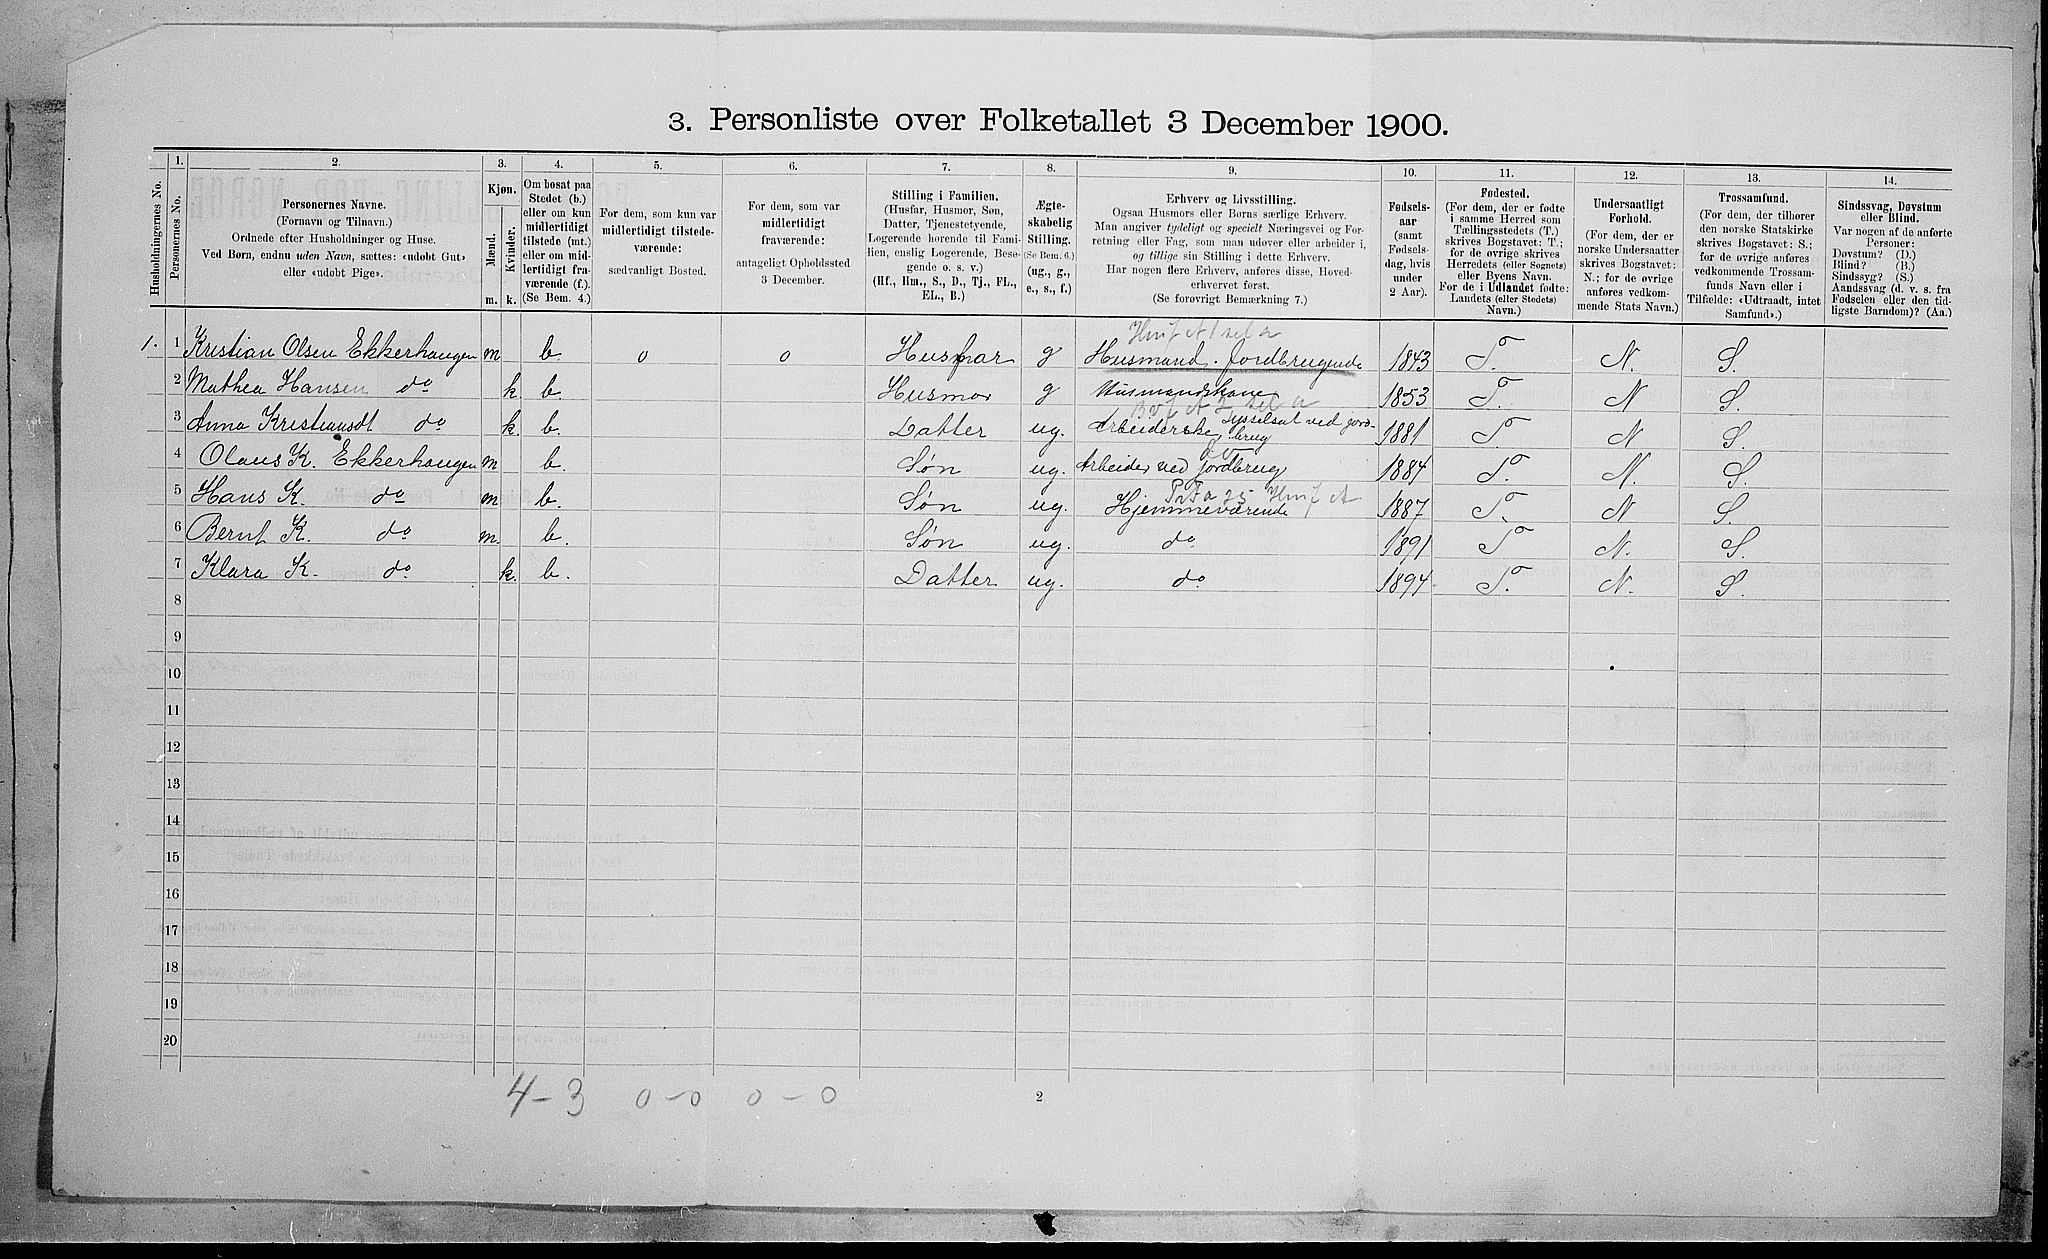 3. Personliste over Folketallet 3 December 1900.
Husholdningernes No.
1.
Personernes No.
2.
Personernes Navne.
(Fornavn og Tilnavn.)
Ordnede efter Husholdninger og Huse.
Ved Børn, endnu uden Navn, sættes: «udøbt Gut»
eller «udøbt Pige».
3.
Kjøn.
Mænd. Kvinder.
m. k.
4.
Om bosat paa
Stedet (b.)
eller om kun
midlertidigt
tilstede (mt.)
eller om mid-
lertidigt fra-
værende (f.).
(Se Bem. 4.)
5.
For dem, som kun var
midlertidigt tilstede-
værende:
sædvanligt Bosted.
6.
For dem, som var
midlertidigt
fraværende:
antageligt Opholdssted
3 December.
7.
Stilling i Familien.
(Husfar, Husmor, Søn,
Datter, Tjenestetyende,
Logerende hørende til Fami-
lien, enslig Logerende, Besø-
gende o. s. v.)
(Hf., Hm., S., D., Tj., FL.,
EL., B.)
8.
Ægte-
skabelig
Stilling.
(Se Bem. 6.)
(ug., g.,
e., s., f.)
9.
Erhverv og Livsstilling.
Ogsaa Husmors eller Børns særlige Erhverv.
Man angiver tydeligt og specielt Næringsvei og For-
retning eller Fag, som man udøver eller arbeider i,
og tillige sin Stilling i dette Erhverv.
Har nogen flere Erhverv, anføres disse, Hoved-
erhvervet først.
(Se forøvrigt Bemærkning 7.)
10.
Fødsels-
aar
(samt
Fødsels-
dag, hvis
under
2 Aar).
11.
Fødested.
(For dem, der er fødte
i samme Herred som
Tællingsstedets (T.)
skrives Bogstavet: T.;
for de øvrige skrives
Herredets (eller Sognets)
eller Byens Navn.
For de i Udlandet fødte:
Landets (eller Stedets)
Navn.)
12.
Undersaatligt
Forhold.
(For dem, der er
norske Undersaatter
skrives Bogstavet:
N.; for de øvrige
anføres vedkom-
mende Stats Navn.)
13.
Trossamfund.
(For dem, der tilhører
den norske Statskirke
skrives Bogstavet: S.;
for de øvrige anføres
vedkommende Trossam-
funds Navn eller i
Tilfælde: «Udtraadt, intet
Samfund».)
14.
Sindssvag, Døvstum
eller Blind.
Var nogen af de anførte
Personer:
Døvstum? (D.)
Blind? (B.)
Sindssyg? (S.)
Aandssvag (d. v. s. fra
Fødselen eller den tid-
ligste Barndom)? (Aa.)
1. 1 Kristian Olsen Ekkerhaugen m b. 0 0 Husfar g Husmand. Jordbrugende 1843 T. N. S.
2 Mathea Hansen do k. b. Husmor g Husmandskone 1853 T. N S.
3 Anna Kristiansdt do k. b. Datter ug. Arbeiderske, Sysselsat ved jord-
brug 1881 T. N S.
4 Olaus K. Ekkerhaugen m b. Søn ug. Arbeider ved jordbrug 1884 T. N. S.
5 Hans K. do m b. Søn ug. Hjemmeværende 1887 T. N S.
6 Bernt K. do m. b. Søn ug. do 1891 T N. S.
7 Klara K. do k. b. Datter ug. do 1894 T. N. S.
8
9
10
11
12
13
14
15
16
17
18
19
20
4-3 0-0 0-0
2